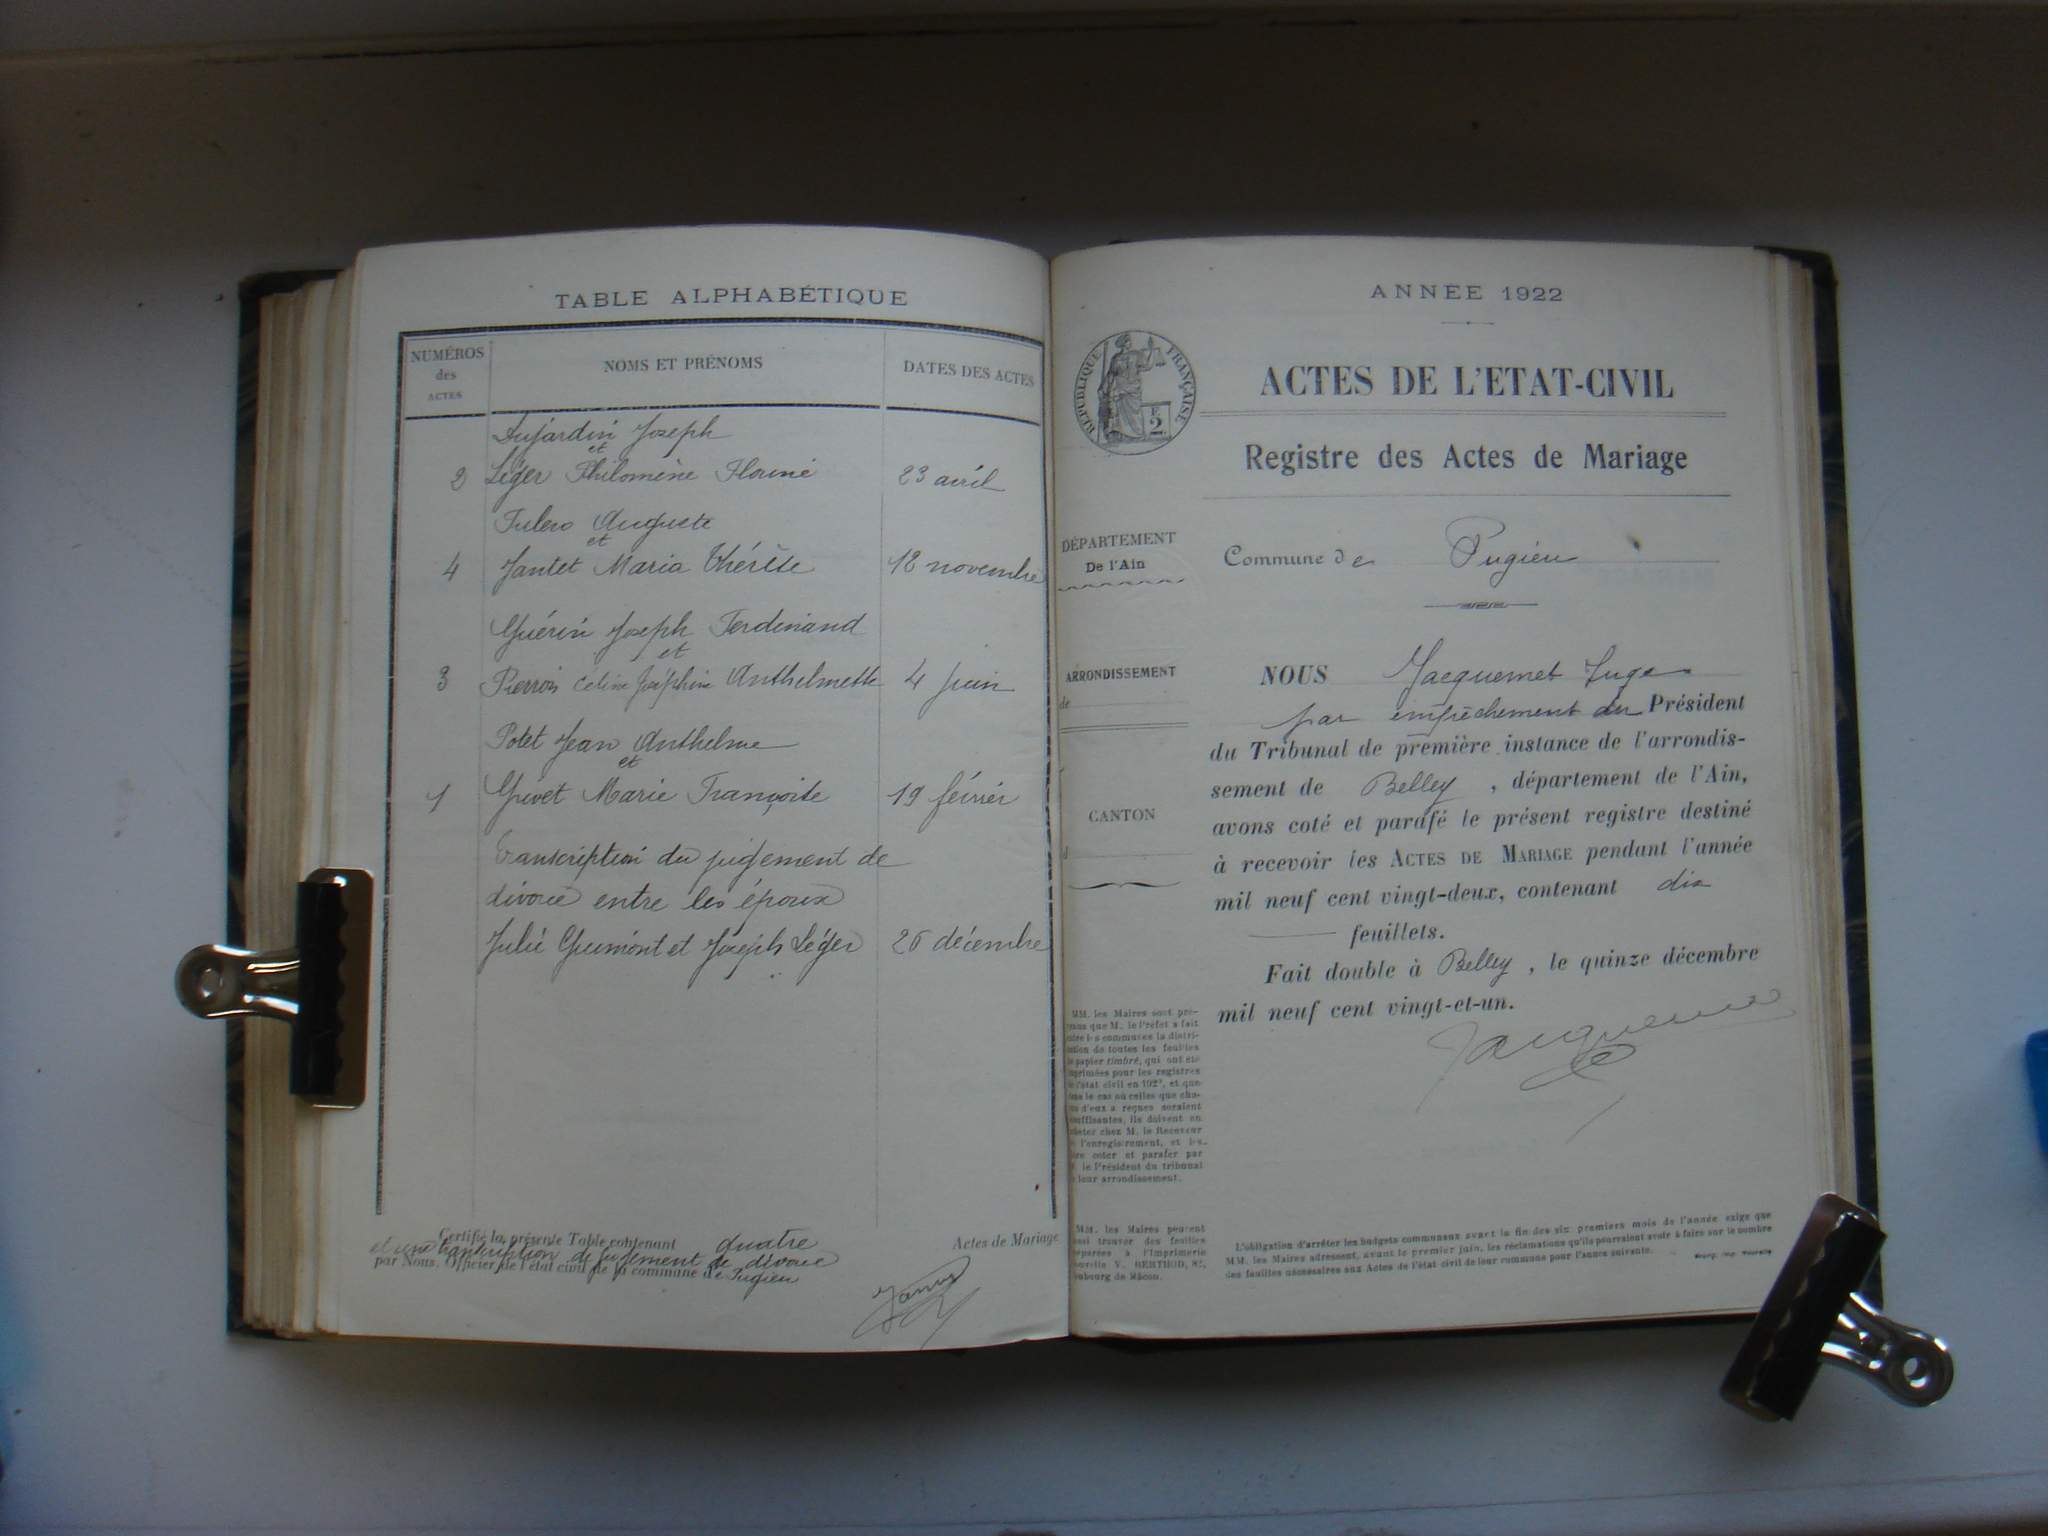 TABLE ALPHABÉTIQUE
NUMÉROS
des
ACTES
NOMS ET PRÉNOMS
DATES DES ACTES
Dujardin Joseph
et
2 Léger Philomène 23 avril
Auguste
et
4 Jantet Maria Thérèse 18 novembre
Guérin Joseph Ferdinand
et
3 Perron Celine Joséphine Anthelmette 4 Juin
Potet Jean Anthelme
et
1 Marie Françoise 19 février
Transcription du jugement de
divorce entre les époux
Julie et Joseph Léger 26 décembre
Certifié la présente Table contenant quatre Actes de Mariage
et une transcription de jugement de divorce
par Nous, Officier de l'état civil de la commune de Pugieu
ANNÉE 1922
RÉPUBLIQUE FRANÇAISE
2
ACTES DE L'ETAT-CIVIL
Registre des Actes de Mariage
DÉPARTEMENT
De l'Ain
Commune de Pugieu
ARRONDISSEMENT
de
CANTON
d
NOUS Jacquemet Juge
par empêchement du Président
du Tribunal de première instance de l'arrondis-
sement de Belley, département de l'Ain,
avons coté et parafé le présent registre destiné
à recevoir les ACTES DE MARIAGE pendant l'année
mil neuf cent vingt-deux, contenant dix
feuillets.
Fait double à Belley, le quinze décembre
mil neuf cent vingt-et-un.
Jacquemet
MM. les Maires sont pré-
que M. le Préfet a fait
les communes la distri-
de toutes les feuilles
papier timbré, qui ont été
pour les registres
l'état civil en 192, et que
le cas où celles que cha-
d'eux a reçues seraient
ils doivent en
chez M. le Receveur
l'enregistrement, et les
coter et parafer par
le Président du tribunal
leur arrondissement.
MM. les Maires peuvent
trouver des feuilles
à l'Imprimerie
V. BERTHOD, 82,
de Mâcon.
L'obligation d'arrêter les budgets communaux avant la fin des six premiers mois de l'année exige que
MM. les Maires adressent, avant le premier juin, les réclamations qu'ils pourraient avoir à faire sur le nombre
des feuilles nécessaires aux Actes de l'état civil de leur commune pour l'année suivante.